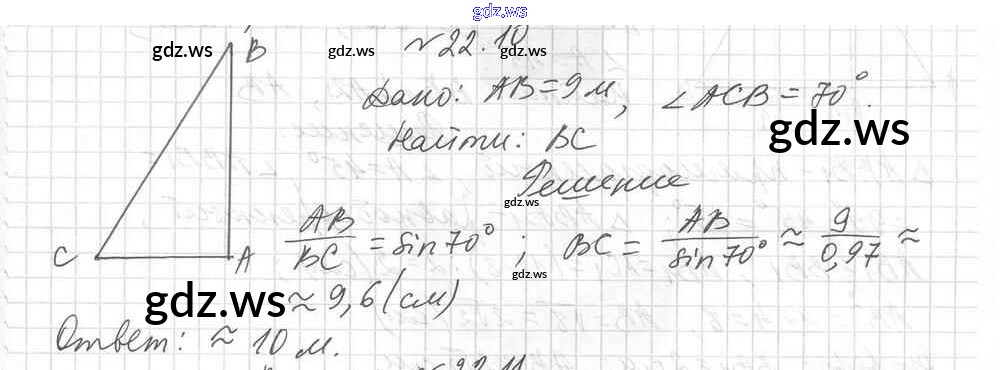 gdz.ws
№22.10
gdz.ws
gdz.ws
B
Дано: AB = 9 м, ∠ACB = 70°.
gdz.ws
Найти: BC
Решение
gdz.ws
C
A
AB/BC = sin 70° ; BC = AB/sin 70° ≈ 9/0,97 ≈
gdz.ws
gdz.ws
≈ 9,6 (см)
Ответ: ≈ 10 м.
№22.11